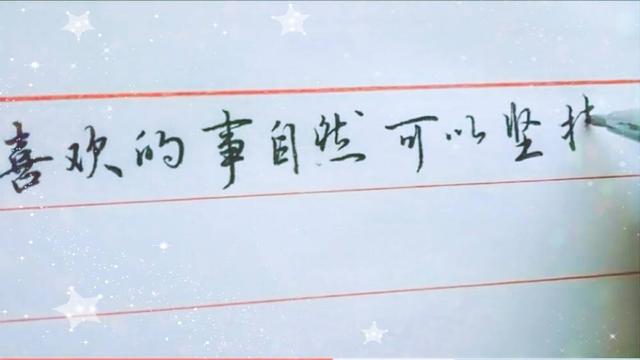 喜欢的事自然可以坚